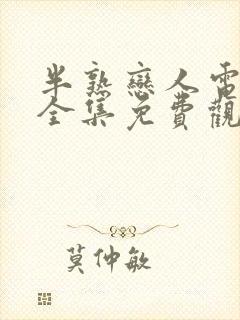 半熟戀人電
全集免費觀
莫仲敏